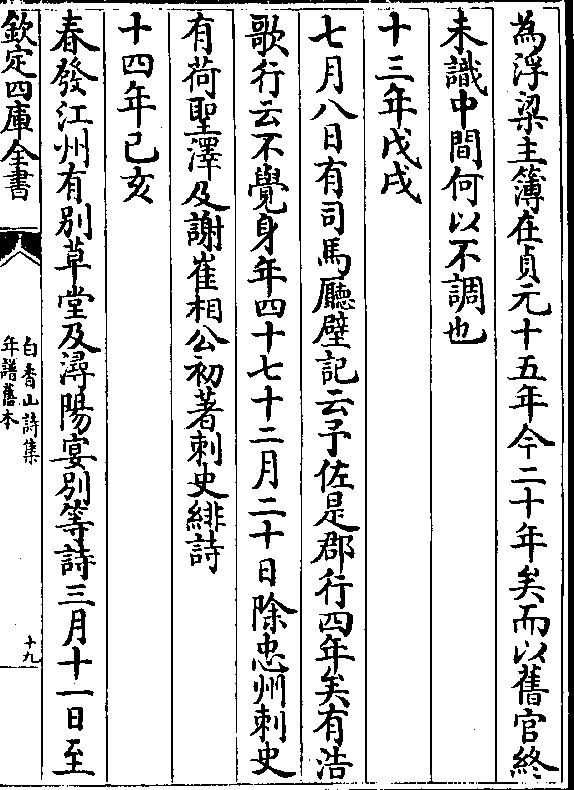 為浮梁主簿在貞元十五年今二十年矣而以舊官終
未識中間何以不調也
十三年戊戌
七月八日有司馬廳壁記云予佐是郡行四年矣有浩
歌行云不覺身年四十七十二月二十日除忠州刺史
有荷聖澤及謝崔相公初著刺史緋詩
十四年己亥
春發江州有別草堂及潯陽宴別等詩三月十一日至
欽定四庫全書
白香山詩集
年譜舊本
十九